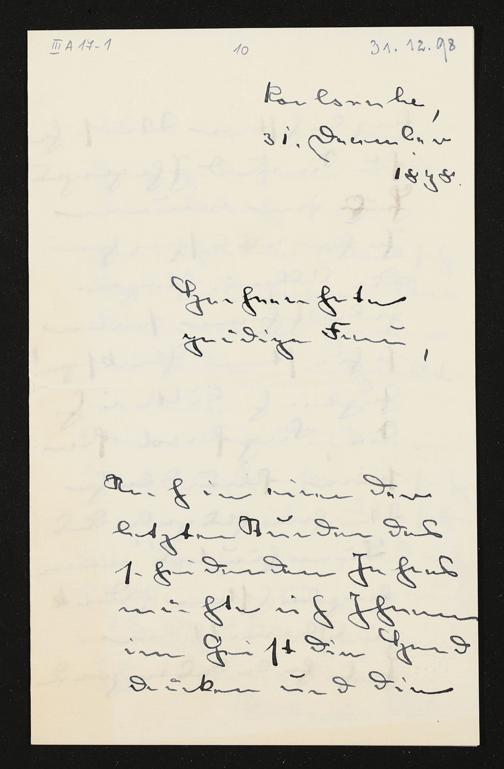 III A 17-1 10 31.12.98
Karlsruhe,
31. Dezember
1898.
Hochverehrte
gnädige Frau,
Noch in einer der
letzten Stunden des
scheidenden Jahres
möchte ich Ihnen
im Geist die Hand
drücken und die